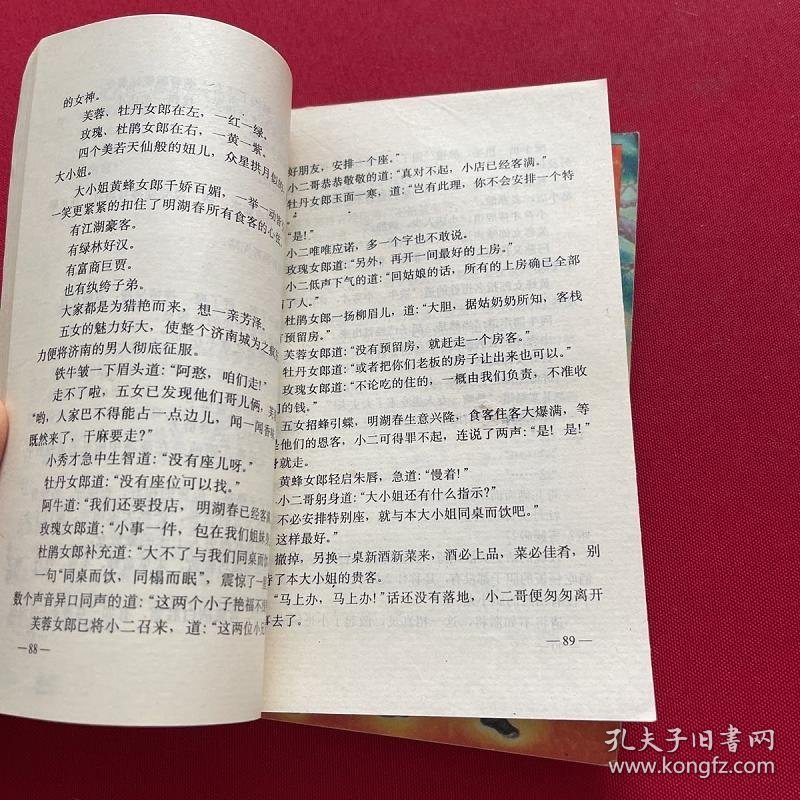 的女神。
芙蓉、牡丹女郎在左，一红一绿。
玫瑰、杜鹃女郎在右，一黄一紫。
四个美若天仙般的妞儿，众星拱月
大小姐。
大小姐黄蜂女郎千娇百媚，一举一动
一笑更紧紧的扣住了明湖春所有食客的心
有江湖豪客。
有绿林好汉。
有富商巨贾。
也有纨绔子弟。
大家都是为猎艳而来，想一亲芳泽。
五女的魅力好大，使整个济南城为之疯
力便将济南的男人彻底征服。
铁牛皱一下眉头道：“阿憨，咱们走！”
走不了啦，五女已发现他们哥儿俩，
“哟，人家巴不得能占一点边儿，闻一闻香
既然来了，干麻要走？”
小秀才急中生智道：“没有座儿呀。”
牡丹女郎道：“没有座位可以找。”
阿牛道：“我们还要投店，明湖春已经客
玫瑰女郎道：“小事一件，包在我们姐妹
杜鹃女郎补充道：“大不了与我们同桌而
一句“同桌而饮，同榻而眠”，震惊了一
数个声音异口同声的道：“这两个小子艳福不
芙蓉女郎已将小二召来，道：“这两位小
—88—
好朋友，安排一个座。”
小二哥恭恭敬敬的道：“真对不起，小店已经客满。”
牡丹女郎玉面一寒，道：“岂有此理，你不会安排一个特
“是！”
小二唯唯应诺，多一个字也不敢说。
玫瑰女郎道：“另外，再开一间最好的上房。”
小二低声下气的道：“回姑娘的话，所有的上房确已全部
了人。”
杜鹃女郎一扬柳眉儿，道：“大胆，据姑奶奶所知，客栈
预留房。”
芙蓉女郎道：“没有预留房，就赶走一个房客。”
牡丹女郎道：“或者把你们老板的房子让出来也可以。”
玫瑰女郎道：“不论吃的住的，一概由我们负责，不准收
们的钱。”
五女招蜂引蝶，明湖春生意兴隆，食客住客大爆满，等
是他们的恩客，小二可得罪不起，连说了两声：“是！是！”
就走。
黄蜂女郎轻启朱唇，急道：“慢着！”
小二哥躬身道：“大小姐还有什么指示？”
不必安排特别座，就与本大小姐同桌而饮吧。”
这样最好。”
撤掉，另换一桌新酒新菜来，酒必上品，菜必佳肴，别
了本大小姐的贵客。”
“马上办，马上办！”话还没有落地，小二哥便匆匆离开
去了。
—89—
孔夫子旧书网
www.kongfz.com